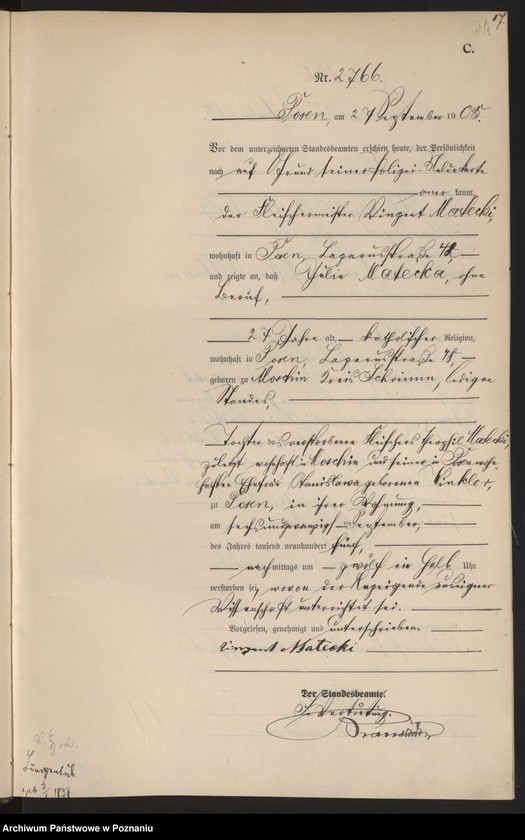 17.
C.
Nr. 2766.
Posen, am 27 September 1905.
Vor dem unterzeichneten Standesbeamten erschien heute, der Persönlichkeit
nach auf Grund seiner Polizei-Meldekarte
kannt,
der Fleischermeister Vinzent Matecki,
wohnhaft in Posen, Lazarusstraße 48,
und zeigte an, daß Julie Matecka, ohne
Beruf,
27 Jahre alt, katholischer Religion,
wohnhaft in Posen, Lazarusstraße 48
geboren zu Moschin Kreis Schrimm, ledigen
Standes,
Tochter des verstorbenen Fleischers Theophil Matecki,
zuletzt wohnhaft in Moschin und seiner in Posen wohn-
haften Ehefrau Stanislawa geborenen Winkler,
zu Posen, in ihrer Wohnung,
am sechsundzwanzigsten September,
des Jahres tausend neunhundert fünf,
nachmittags um zwölf ein halb Uhr
verstorben sei, wovon der Anzeigende aus eigner
Wissenschaft unterrichtet sei.
Vorgelesen, genehmigt und unterschrieben.
Vinzent Matecki
Der Standesbeamte.
In Vertretung.
Archiwum Państwowe w Poznaniu